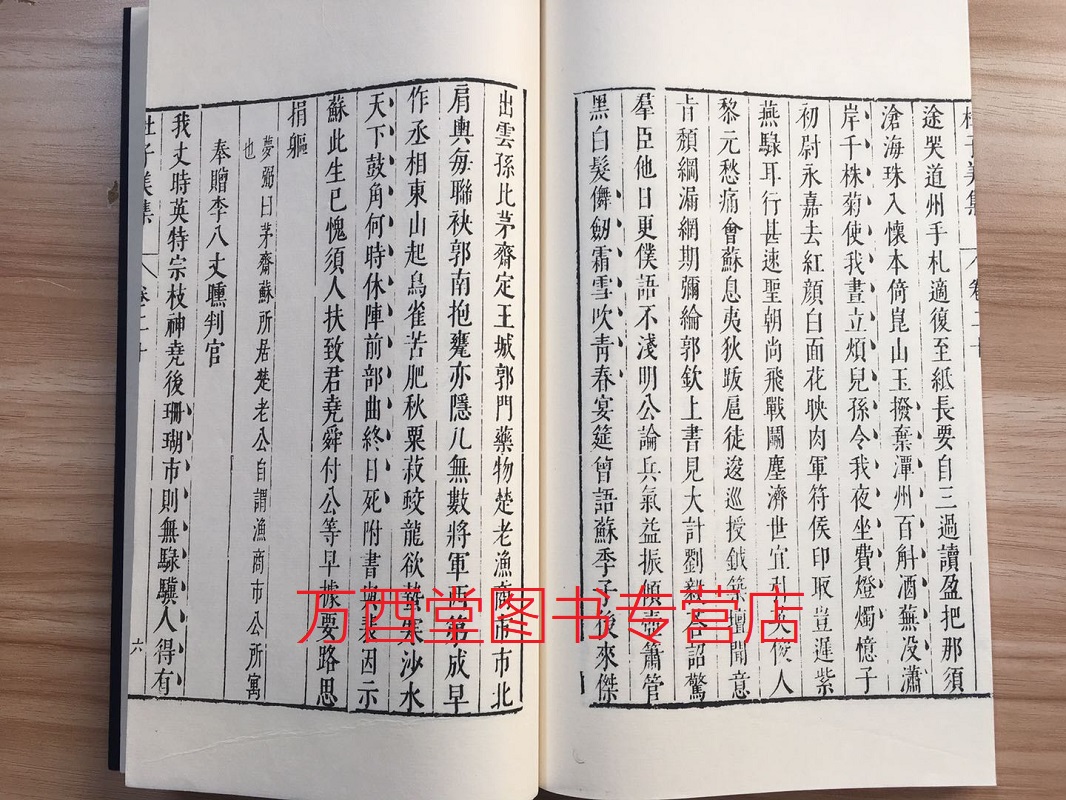 杜子美集 卷二十
途哭道州手札適復至紙長要自三過讀盈把那須
滄海珠入懷本倚崑山玉撥棄潭州百斛酒蕪沒瀟
岸千株菊使我晝立煩兒孫令我夜坐費燈燭憶子
初尉永嘉去紅顏白面花映肉軍符侯印取豈遲紫
燕騄耳行甚速聖朝尚飛戰鬭塵濟世宜引英俊人
黎元愁痛會蘇息夷狄跋扈徒逡巡授鉞築壇聞意
旨頹綱漏網期彌綸郭欽上書見大計劉毅荅詔驚
羣臣他日更僕語不淺明公論兵氣益振傾壺簫管
黑白髮儛劒霜雪吹青春宴筵曾語蘇季子後來傑
出雲孫比茅齋定王城郭門藥物楚老漁商市市北
肩輿每聯袂郭南抱甕亦隱几無數將軍西第成早
作丞相東山起鳥雀苦肥秋粟菽蛟龍欲蟄寒沙水
天下鼓角何時休陣前部曲終日死附書與裴因示
蘇此生已愧須人扶致君堯舜付公等早據要路思
捐軀
夢弼曰茅齋蘇所居楚老公自謂漁商市公所寓
也
奉贈李八丈曛判官
我丈時英特宗枝神堯後珊瑚市則無騄驥人得有
杜子美集 卷二十 六
万西堂图书专营店